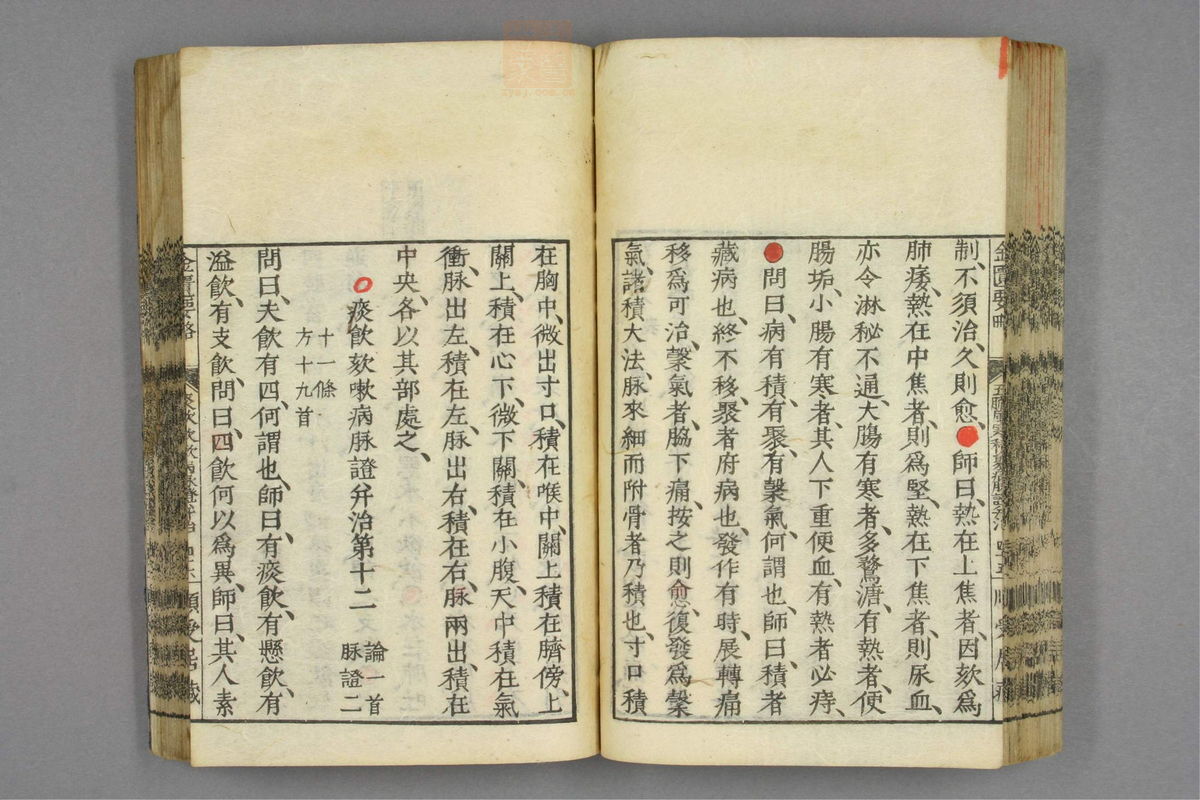 制、不須治、久則愈、師曰、熱在上焦者、因欬爲
肺痿、熱在中焦者、則爲堅、熱在下焦者、則尿血、
亦令淋秘不通、大腸有寒者、多鶩溏、有熱者、便
腸垢、小腸有寒者、其人下重便血、有熱者必痔、
問曰、病有積、有聚、有槃氣、何謂也、師曰、積者
藏病也、終不移、聚者府病也、發作有時、展轉痛
移爲可治、槃氣者、脇下痛、按之則愈、復發爲槃
氣、諸積大法、脉來細而附骨者乃積也、寸口積
在胸中、微出寸口、積在喉中、關上積在臍傍、上
關上、積在心下、微下關、積在小腹、天中積在氣
衝、脉出左、積在左、脉出右、積在右、脉兩出、積在
中央、各以其部處之、
痰飲欬嗽病脉證并治第十二
論一首
脉證二
十一條
方十九首
問曰、夫飲有四、何謂也、師曰、有痰飲、有懸飲、有
溢飲、有支飲、問曰、四飲何以爲異、師曰、其人素
金匱要略